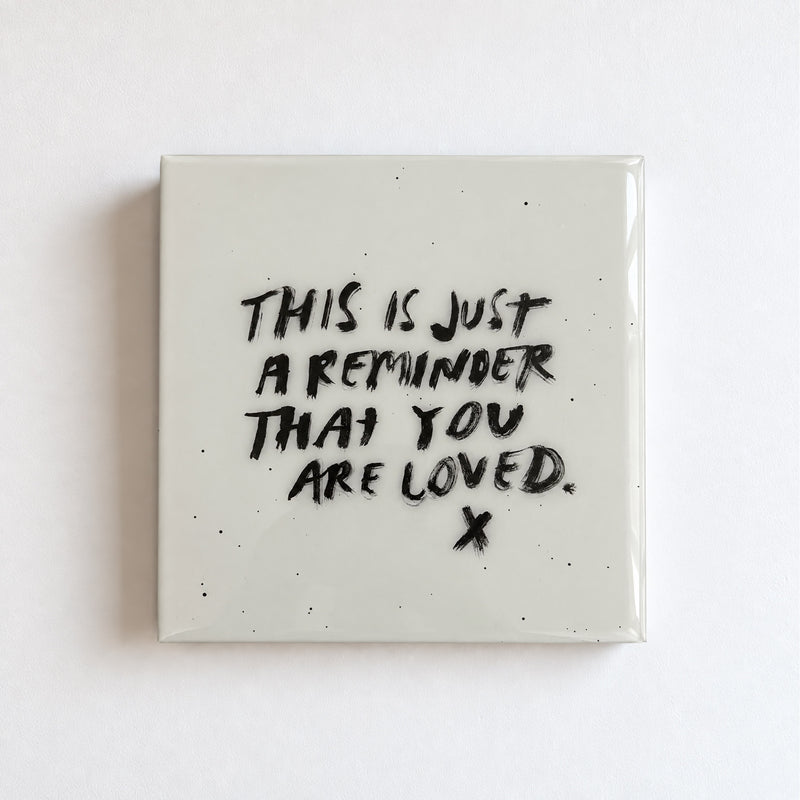 THIS IS JUST
A REMINDER
THAT YOU
ARE LOVED.
X